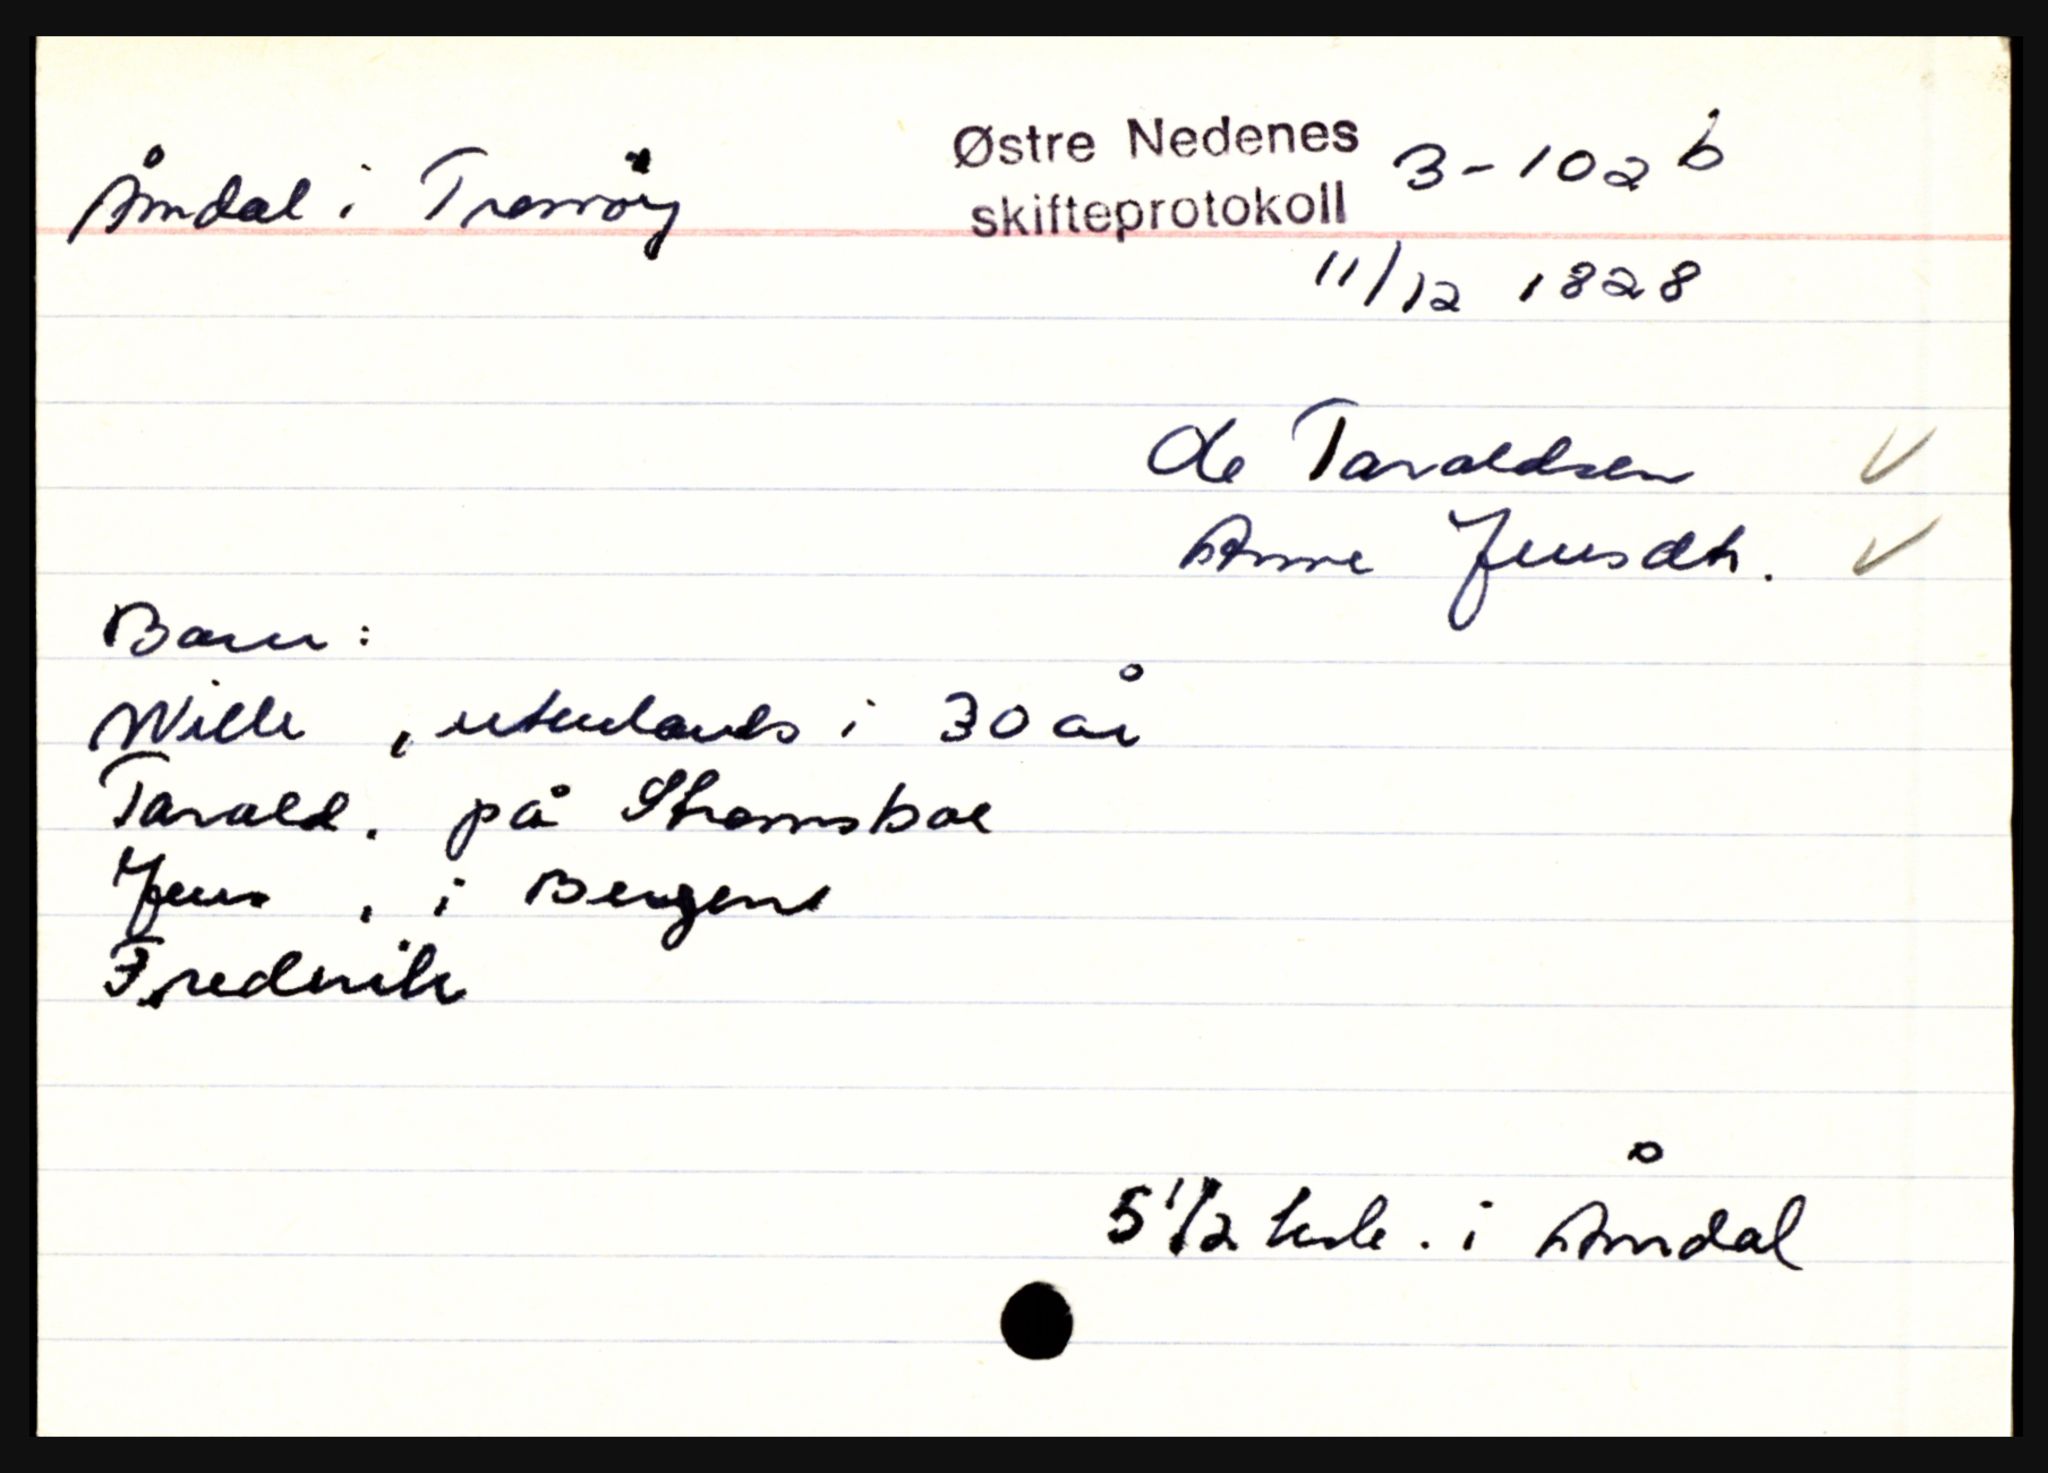 Åmdal i Tromöy
Østre Nedenes 3-102 b
skifteprotokoll
11/12 1828
Ole Taraldsen
Anne Jensdtr.
Barn:
Wille, utenlands i 30 år
Tarald, på Strømsboe
Jens, i Bergen
Fredrik
5 1/2 kalv. i Åmdal